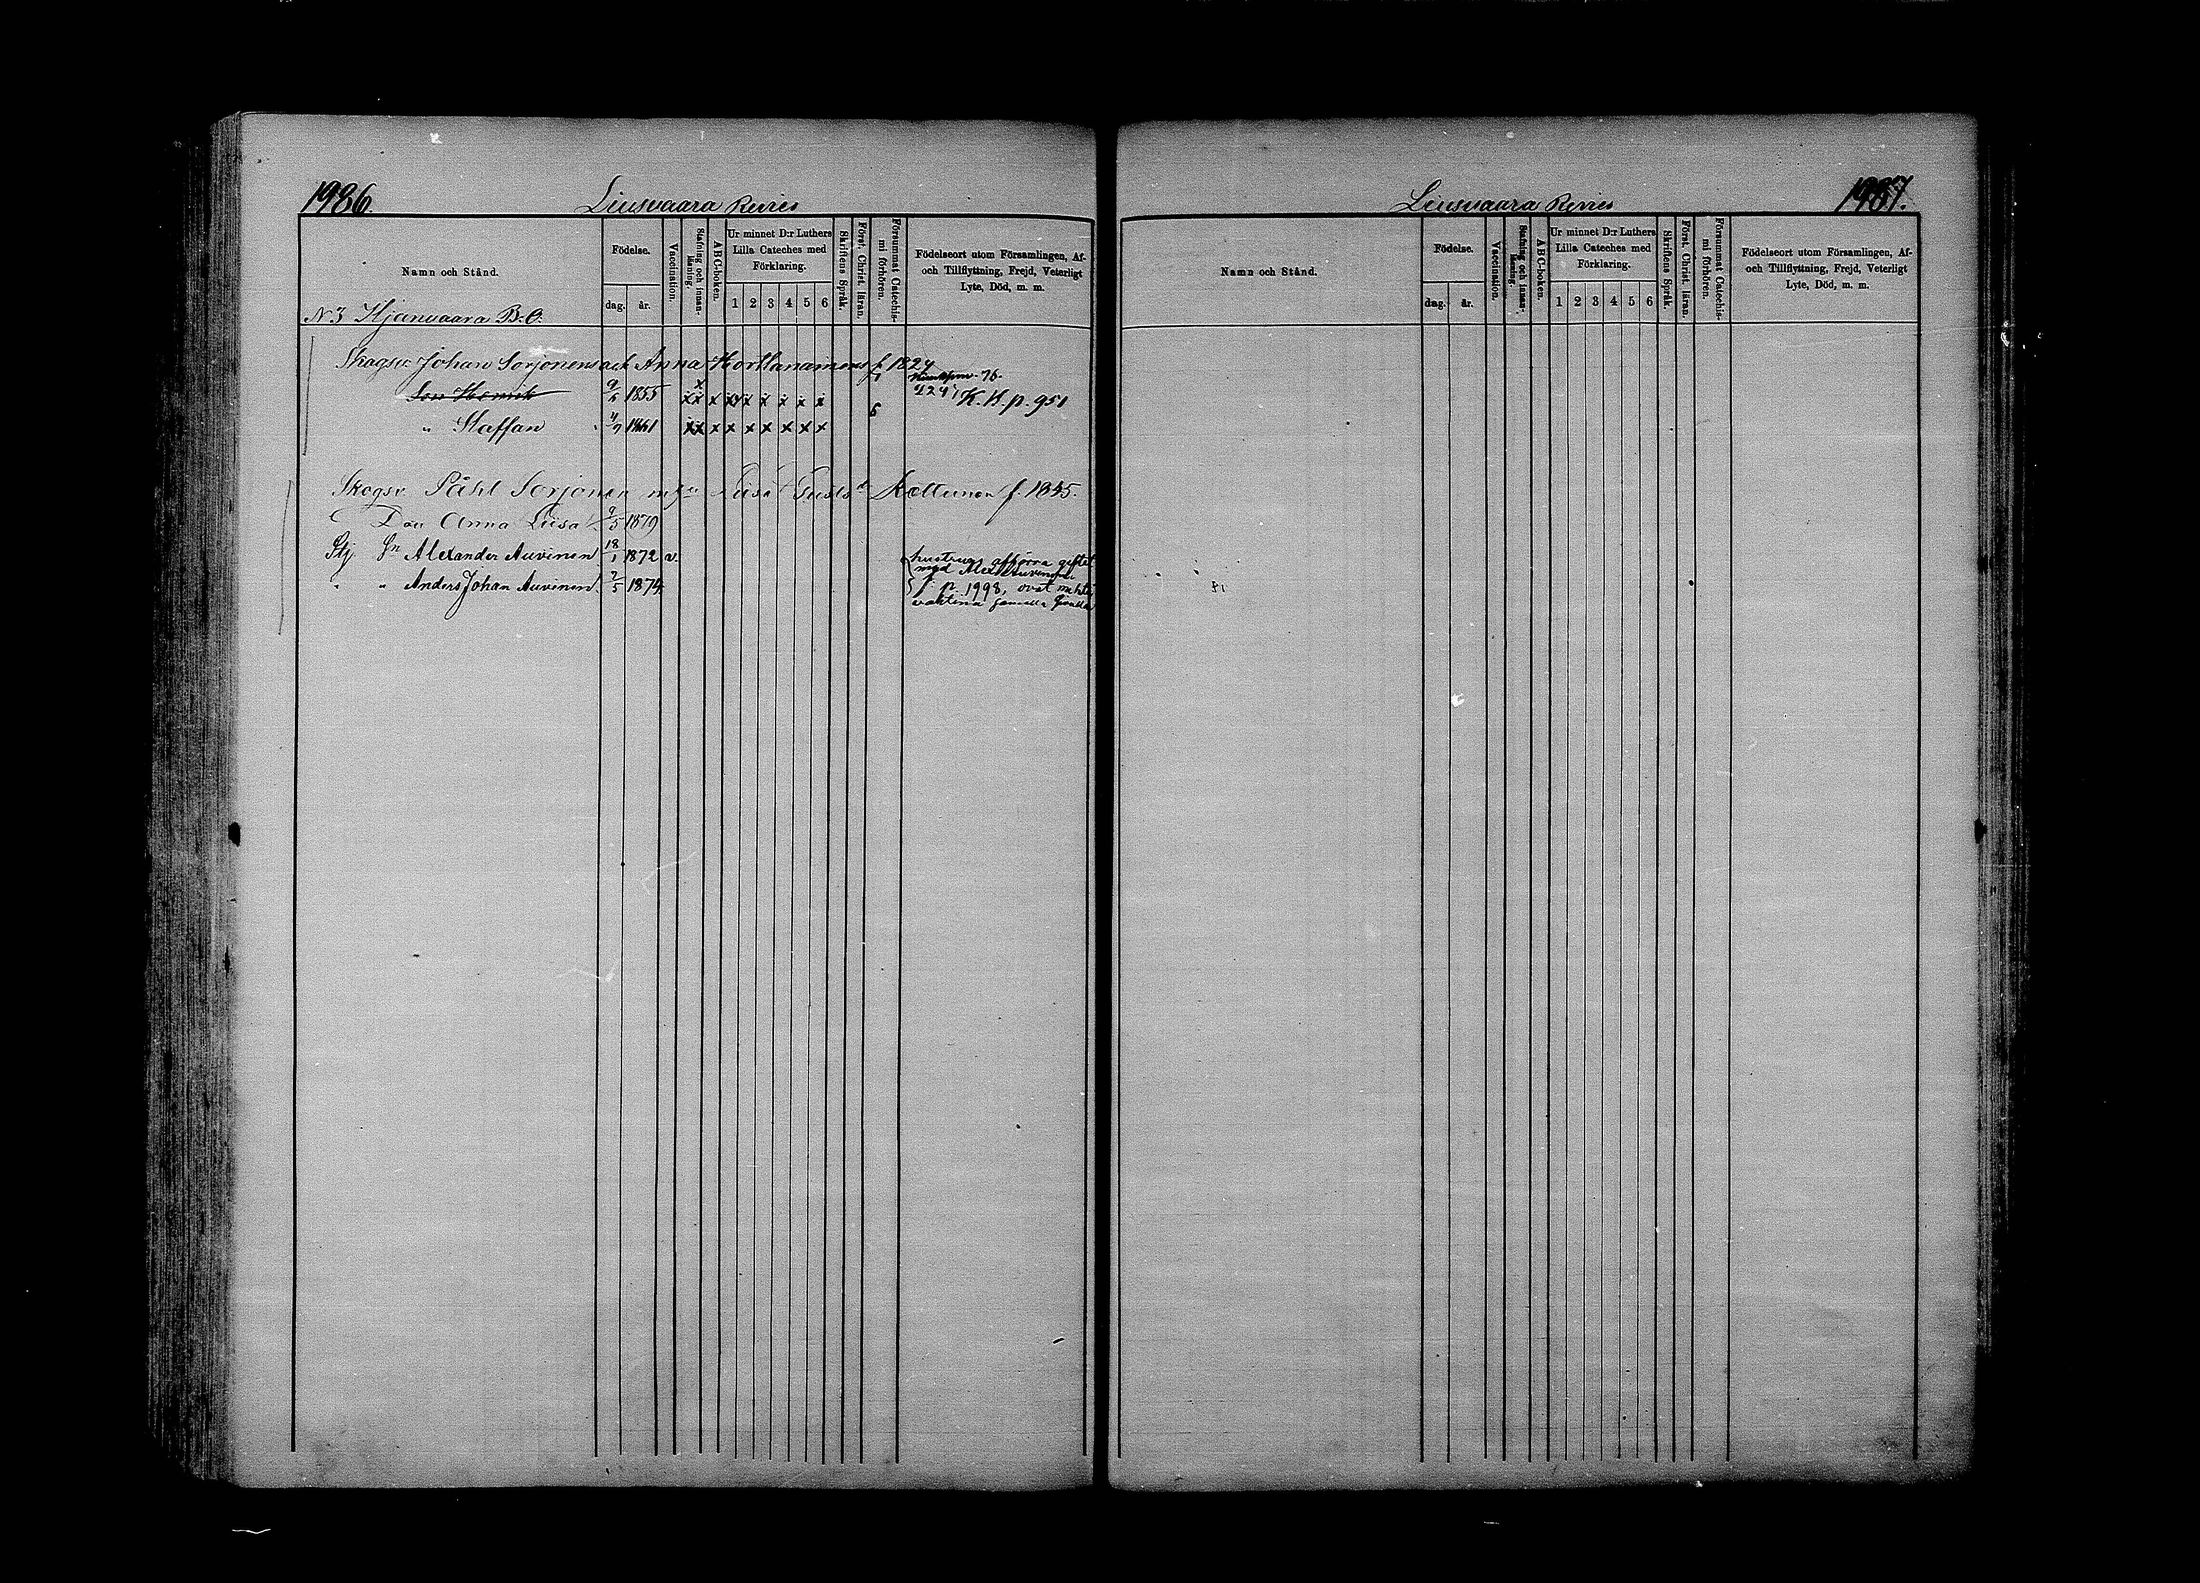 1986.
Liusvaara Revier
Namn och Stånd.
Födelse.
dag.
år.
Vaccination.
Stafning och innanläsning.
ABC-boken.
Ur minnet D:r Luthers
Lilla Cateches med
Förklaring.
1 2 3 4 5 6
Skriftens Språk.
Först. Christ. läran.
Försummat Catechismi förhören.
Födelseort utom Församlingen, Af-
och Tillflyttning, Frejd, Veterligt
Lyte, Död, m. m.
N 3 Kjanvaara B. O.
Skogsv. Johan Sorjonens och Anna f. 1824
Son Henrik 9/6 1855 x x x x x x x x x K. B. p. 951
" Staffan 4/7 1861 x x x x x x x x x
6
Skogsv. Påhl Sorjonen Liisa Kettunen f. 1845.
Dou Anna Liisa 9/5 1879
Stj Sn Alexander Auvinen 18/1 1872 v.
hustruns afförra giftet
med Alex Auvinen
" " Anders Johan Auvinen 7/5 1874.
p. 1998,
1987.
Liusvaara Revier
Namn och Stånd.
Födelse.
dag.
år.
Vaccination.
Stafning och innanläsning.
ABC-boken.
Ur minnet D:r Luthers
Lilla Cateches med
Förklaring.
1 2 3 4 5 6
Skriftens Språk.
Först. Christ. läran.
Försummat Catechismi förhören.
Födelseort utom Församlingen, Af-
och Tillflyttning, Frejd, Veterligt
Lyte, Död, m. m.